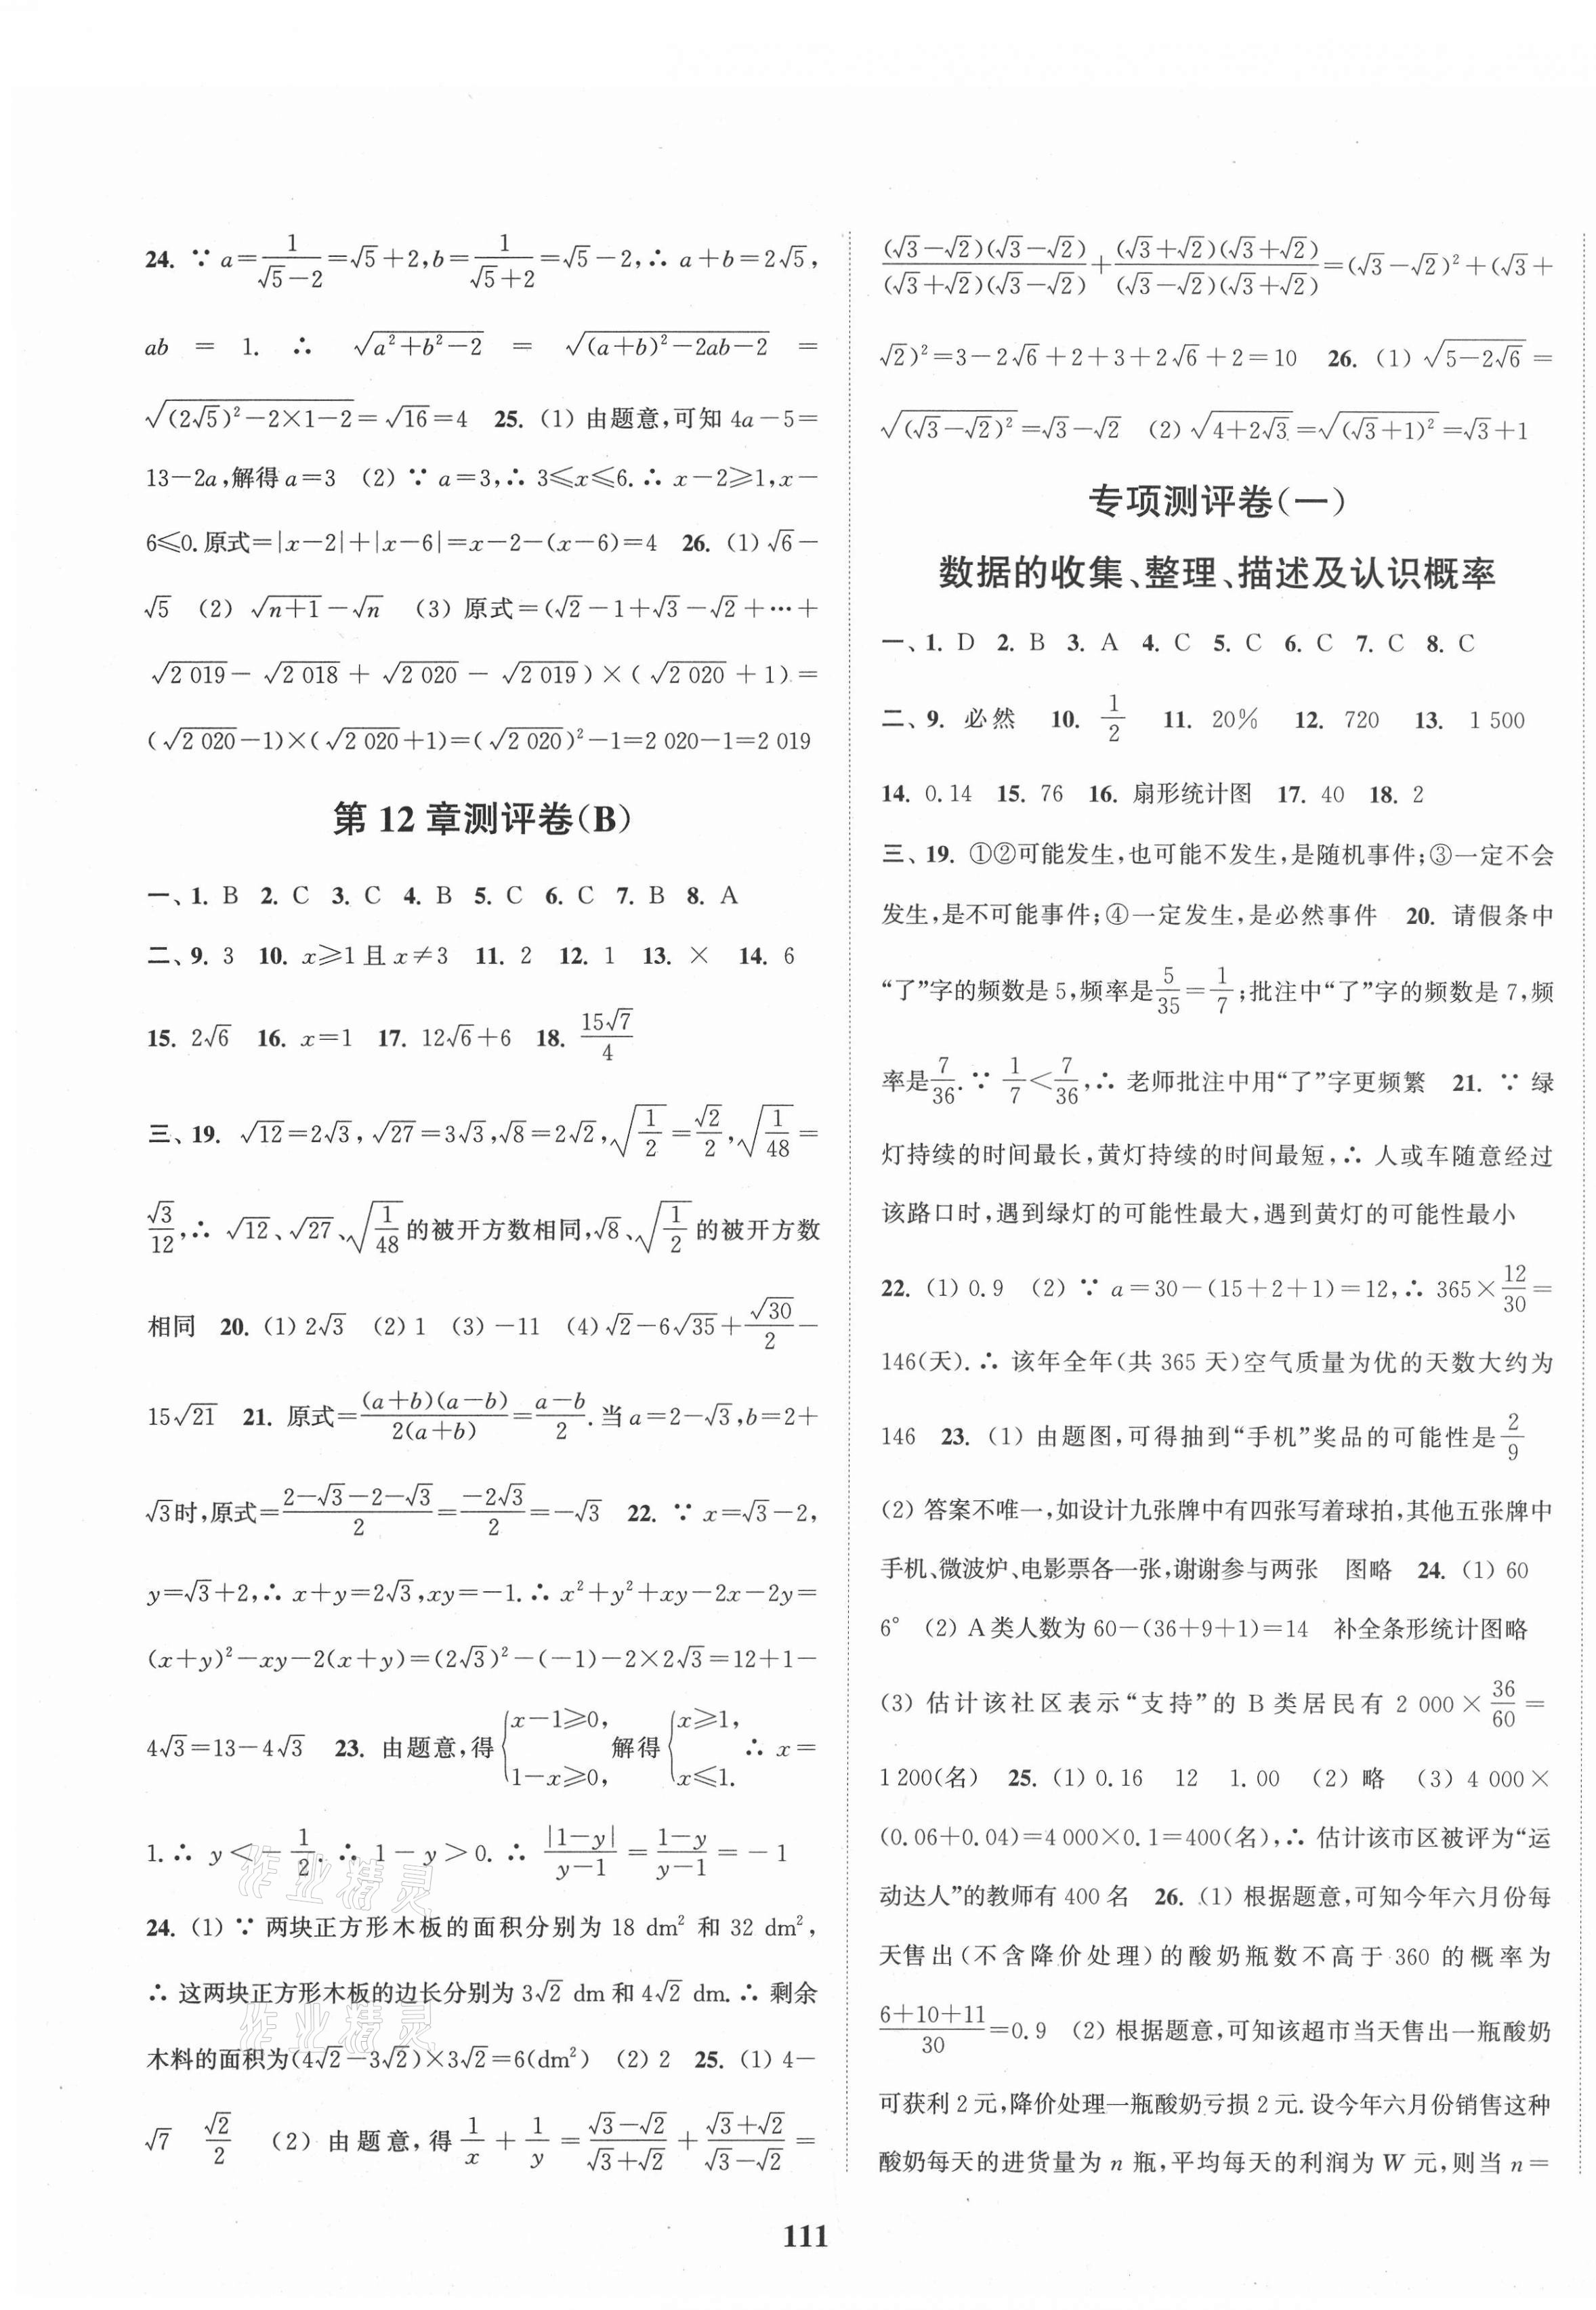 24. ∵ a=1/(√5-2)=√5+2,b=1/(√5+2)=√5-2,∴ a+b=2√5,
ab = 1. ∴ √(a²+b²-2) = √((a+b)²-2ab-2) =
√((2√5)²-2×1-2)=√16=4 25. (1) 由题意,可知 4a-5=
13-2a,解得 a=3 (2) ∵ a=3,∴ 3≤x≤6.∴ x-2≥1,x-
6≤0.原式=|x-2|+|x-6|=x-2-(x-6)=4 26. (1) √6-
√5 (2) √(n+1)-√n (3) 原式=(√2-1+√3-√2+…+
√2 019- √2 018 + √2 020 - √2 019)×(√2 020 +1)=
(√2 020-1)×(√2 020+1)=(√2 020)²-1=2 020-1=2 019
第 12 章测评卷(B)
一、1. B 2. C 3. C 4. B 5. C 6. C 7. B 8. A
二、9. 3 10. x≥1 且 x≠3 11. 2 12. 1 13. × 14. 6
15. 2√6 16. x=1 17. 12√6+6 18. 15√7/4
三、19. √12=2√3, √27=3√3,√8=2√2,√(1/2)=√2/2,√(1/48)=
√3/12,∴ √12、√27、√(1/48)的被开方数相同,√8、√(1/2)的被开方数
相同 20. (1) 2√3 (2) 1 (3) -11 (4) √2-6√35+√30/2-
15√21 21. 原式=(a+b)(a-b)/2(a+b)=(a-b)/2.当 a=2-√3,b=2+
√3时,原式=(2-√3-2-√3)/2=-2√3/2=-√3 22. ∵ x=√3-2,
y=√3+2,∴ x+y=2√3,xy=-1.∴ x²+y²+xy-2x-2y=
(x+y)²-xy-2(x+y)=(2√3)²-(-1)-2×2√3=12+1-
4√3=13-4√3 23. 由题意,得{x-1≥0, 1-x≥0, 解得{x≥1, x≤1. ∴ x=
1.∴ y<-1/2.∴ 1-y>0.∴ |1-y|/(y-1)=(1-y)/(y-1)=-1
24. (1) ∵ 两块正方形木板的面积分别为 18 dm² 和 32 dm²,
∴ 这两块正方形木板的边长分别为 3√2 dm 和 4√2 dm.∴ 剩余
木料的面积为(4√2-3√2)×3√2=6(dm²) (2) 2 25. (1) 4-
√7 √2/2 (2) 由题意,得 1/x+1/y=(√3-√2)/(√3+√2)+(√3+√2)/(√3-√2)=
(√3-√2)(√3-√2)/(√3+√2)(√3-√2)+(√3+√2)(√3+√2)/(√3-√2)(√3+√2)=(√3-√2)²+(√3+
√2)²=3-2√6+2+3+2√6+2=10 26. (1) √(5-2√6)=
√((√3-√2)²)=√3-√2 (2) √(4+2√3)=√((√3+1)²)=√3+1
专项测评卷(一)
数据的收集、整理、描述及认识概率
一、1. D 2. B 3. A 4. C 5. C 6. C 7. C 8. C
二、9. 必然 10. 1/2 11. 20% 12. 720 13. 1 500
14. 0.14 15. 76 16. 扇形统计图 17. 40 18. 2
三、19. ①②可能发生,也可能不发生,是随机事件;③一定不会
发生,是不可能事件;④一定发生,是必然事件 20. 请假条中
“了”字的频数是 5,频率是5/35=1/7;批注中“了”字的频数是 7,频
率是7/36.∵ 1/7<7/36,∴ 老师批注中用“了”字更频繁 21. ∵ 绿
灯持续的时间最长,黄灯持续的时间最短,∴ 人或车随意经过
该路口时,遇到绿灯的可能性最大,遇到黄灯的可能性最小
22. (1) 0.9 (2) ∵ a=30-(15+2+1)=12,∴ 365×12/30=
146(天).∴ 该年全年(共 365 天)空气质量为优的天数大约为
146 23. (1) 由题图,可得抽到“手机”奖品的可能性是2/9
(2) 答案不唯一,如设计九张牌中有四张写着球拍,其他五张牌中
手机、微波炉、电影票各一张,谢谢参与两张 图略 24. (1) 60
6° (2) A 类人数为 60-(36+9+1)=14 补全条形统计图略
(3) 估计该社区表示“支持”的 B 类居民有 2 000×36/60=
1 200(名) 25. (1) 0.16 12 1.00 (2) 略 (3) 4 000×
(0.06+0.04)=4 000×0.1=400(名),∴ 估计该市区被评为“运
动达人”的教师有 400 名 26. (1) 根据题意,可知今年六月份每
天售出(不含降价处理)的酸奶瓶数不高于 360 的概率为
(6+10+11)/30=0.9 (2) 根据题意,可知该超市当天售出一瓶酸奶
可获利 2 元,降价处理一瓶酸奶亏损 2 元.设今年六月份销售这种
酸奶每天的进货量为 n 瓶,平均每天的利润为 W 元,则当 n=
111
作业精灵
作业精灵